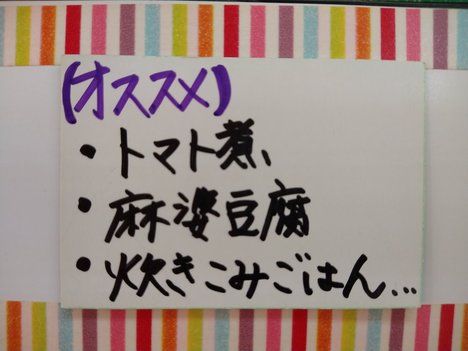 (オススメ)
・トマト煮、
・麻婆豆腐
・炊きこみごはん...